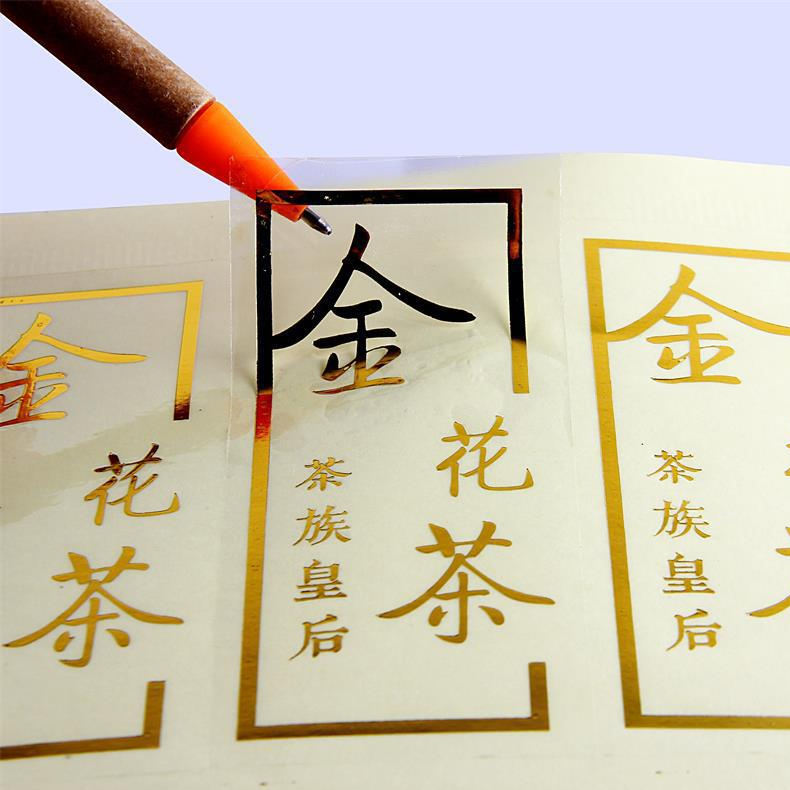 金
花茶
金
花茶
茶族皇后
金
茶族皇后